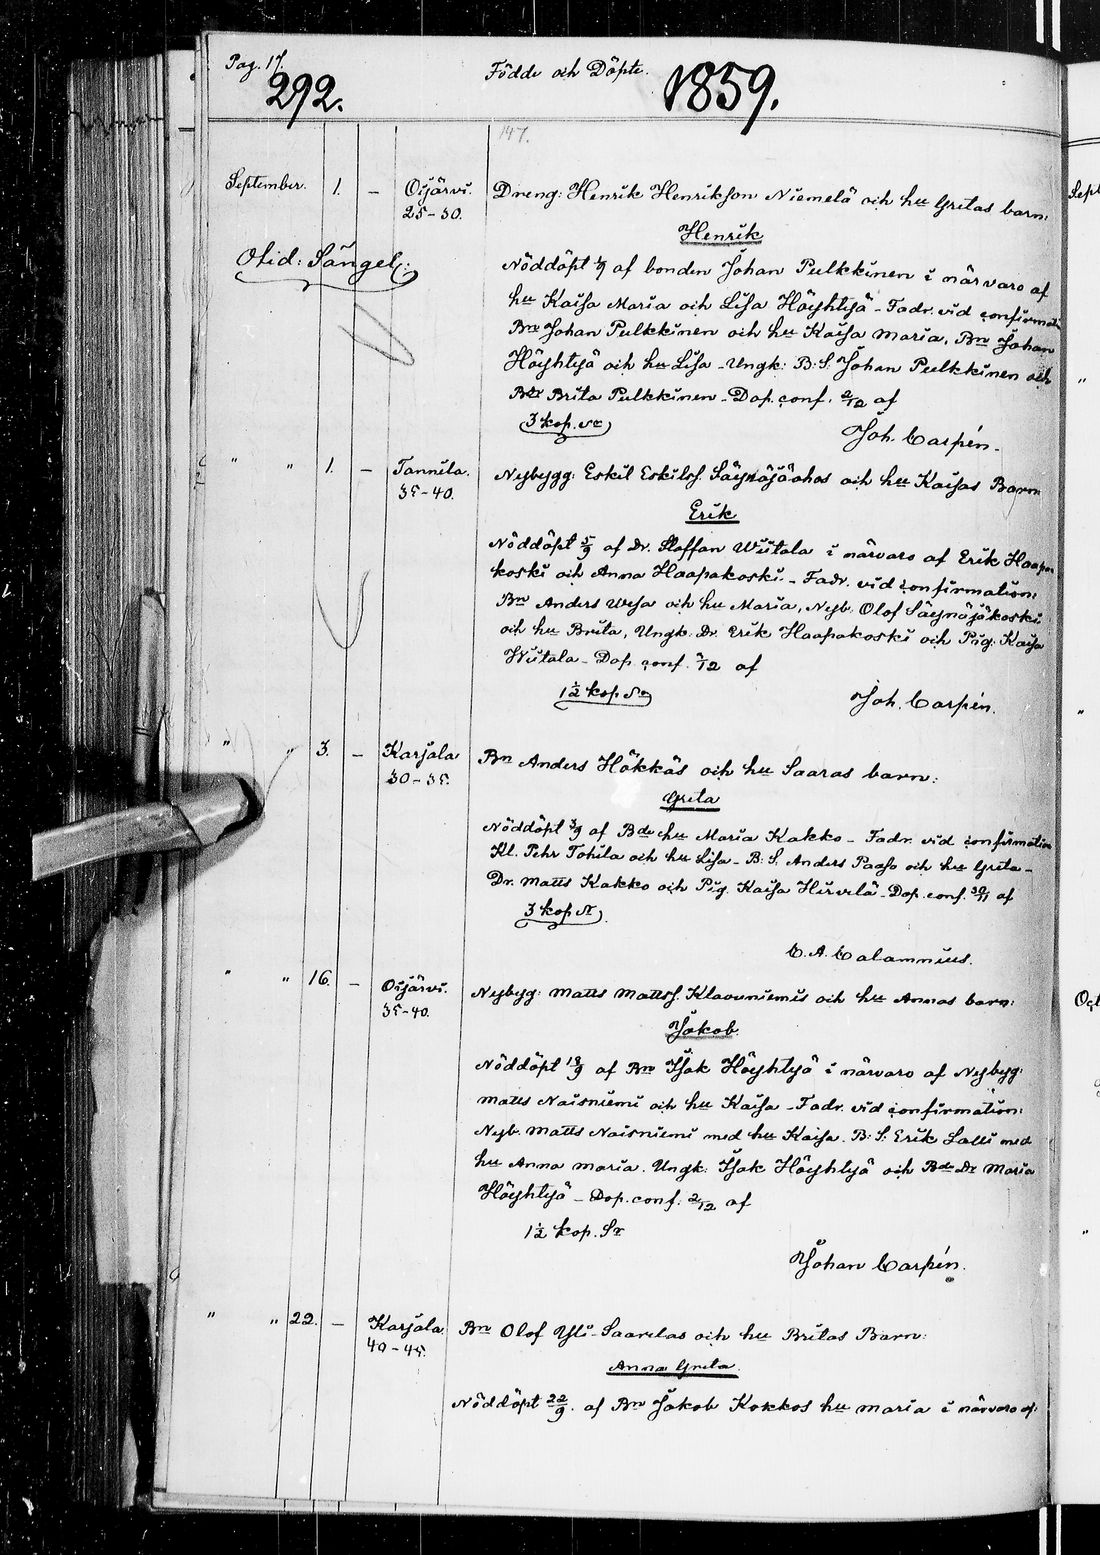 Pag. 17.
292.
Födde och Döpte.
1859.
147.
September. 1. – Oijärvi. 25-30.
Dreng: Henrik Henrikson Niemelä och hu Gretas barn:
Henrik
Otid: Sängel:
Nöddöpt 1/9 af bonden Johan Pulkkinen i närvaro af
hu Kaisa Maria och Lisa Höyhtyä - Fadr. vid confirmati
Bn Johan Pulkkinen och hu Kaisa Maria, Bn Johan
Höyhtyä och hu Lisa - Ungk: B:S. Johan Pulkkinen och
Bdr Brita Pulkkinen - Dop. conf. 2/12 af
3 kop. Sr
Joh. Carpén.
" " 1. – Tannila. 35-40.
Nybygg: Eskil Eskilss. Säynäjäahos och hu Kaisas Barn
Erik
Nöddöpt 5/9 af Dr. Staffan Wiitala i närvaro af Erik Haapa
koski och Anna Haapakoski. - Fadr. vid confirmation:
Bn Anders Wesa och hu Maria, Nyb. Olof Säynäjäkoski
och hu Brita, Ungk. Dr. Erik Haapakoski och Pig. Kaisa
Wiitala - Dop. conf. 2/12 af
1½ kop Sr
Joh. Carpén.
" " 3. – Karjala 30-35.
Bn Anders Häkkäs och hu Saaras barn:
Greta
Nöddöpt 3/9 af Bde hu Maria Kakko - Fadr. vid confirmation
Kl. Pehr Tohila och hu Lisa - B: S. Anders Paaso och hu Greta -
Dr. Matts Kakko och Pig. Kaisa Hirvelä - Dop. conf. 30/11 af
3 kop Sr
C. A. Calamnius.
" " 16. – Oijärvi. 35-40.
Nybyg: Matts Mattss. Klaavuniemis och hu Annas barn:
Jakob.
Nöddöpt 18/9 af Bn Isak Höyhtyä i närvaro af Nybyg:
Matts Naisniemi och hu Kaisa - Fadr. vid confirmation:
Nyb. Matts Naisniemi med hu Kaisa. B: S: Erik Lalli med
hu Anna Maria. Ungk: Isak Höyhtyä och Bde Dr Maria
Höyhtyä - Dop. conf. 2/12 af
1½ kop. Sr
Johan Carpén.
" " 22. – Karjala 40-45.
Bn Olof Yli-Saarelas och hu Britas Barn:
Anna Greta.
Nöddöpt 22/9. af Bn Jakob Kokkos hu Maria i närvaro af:
Sept
"
"
Oct
"